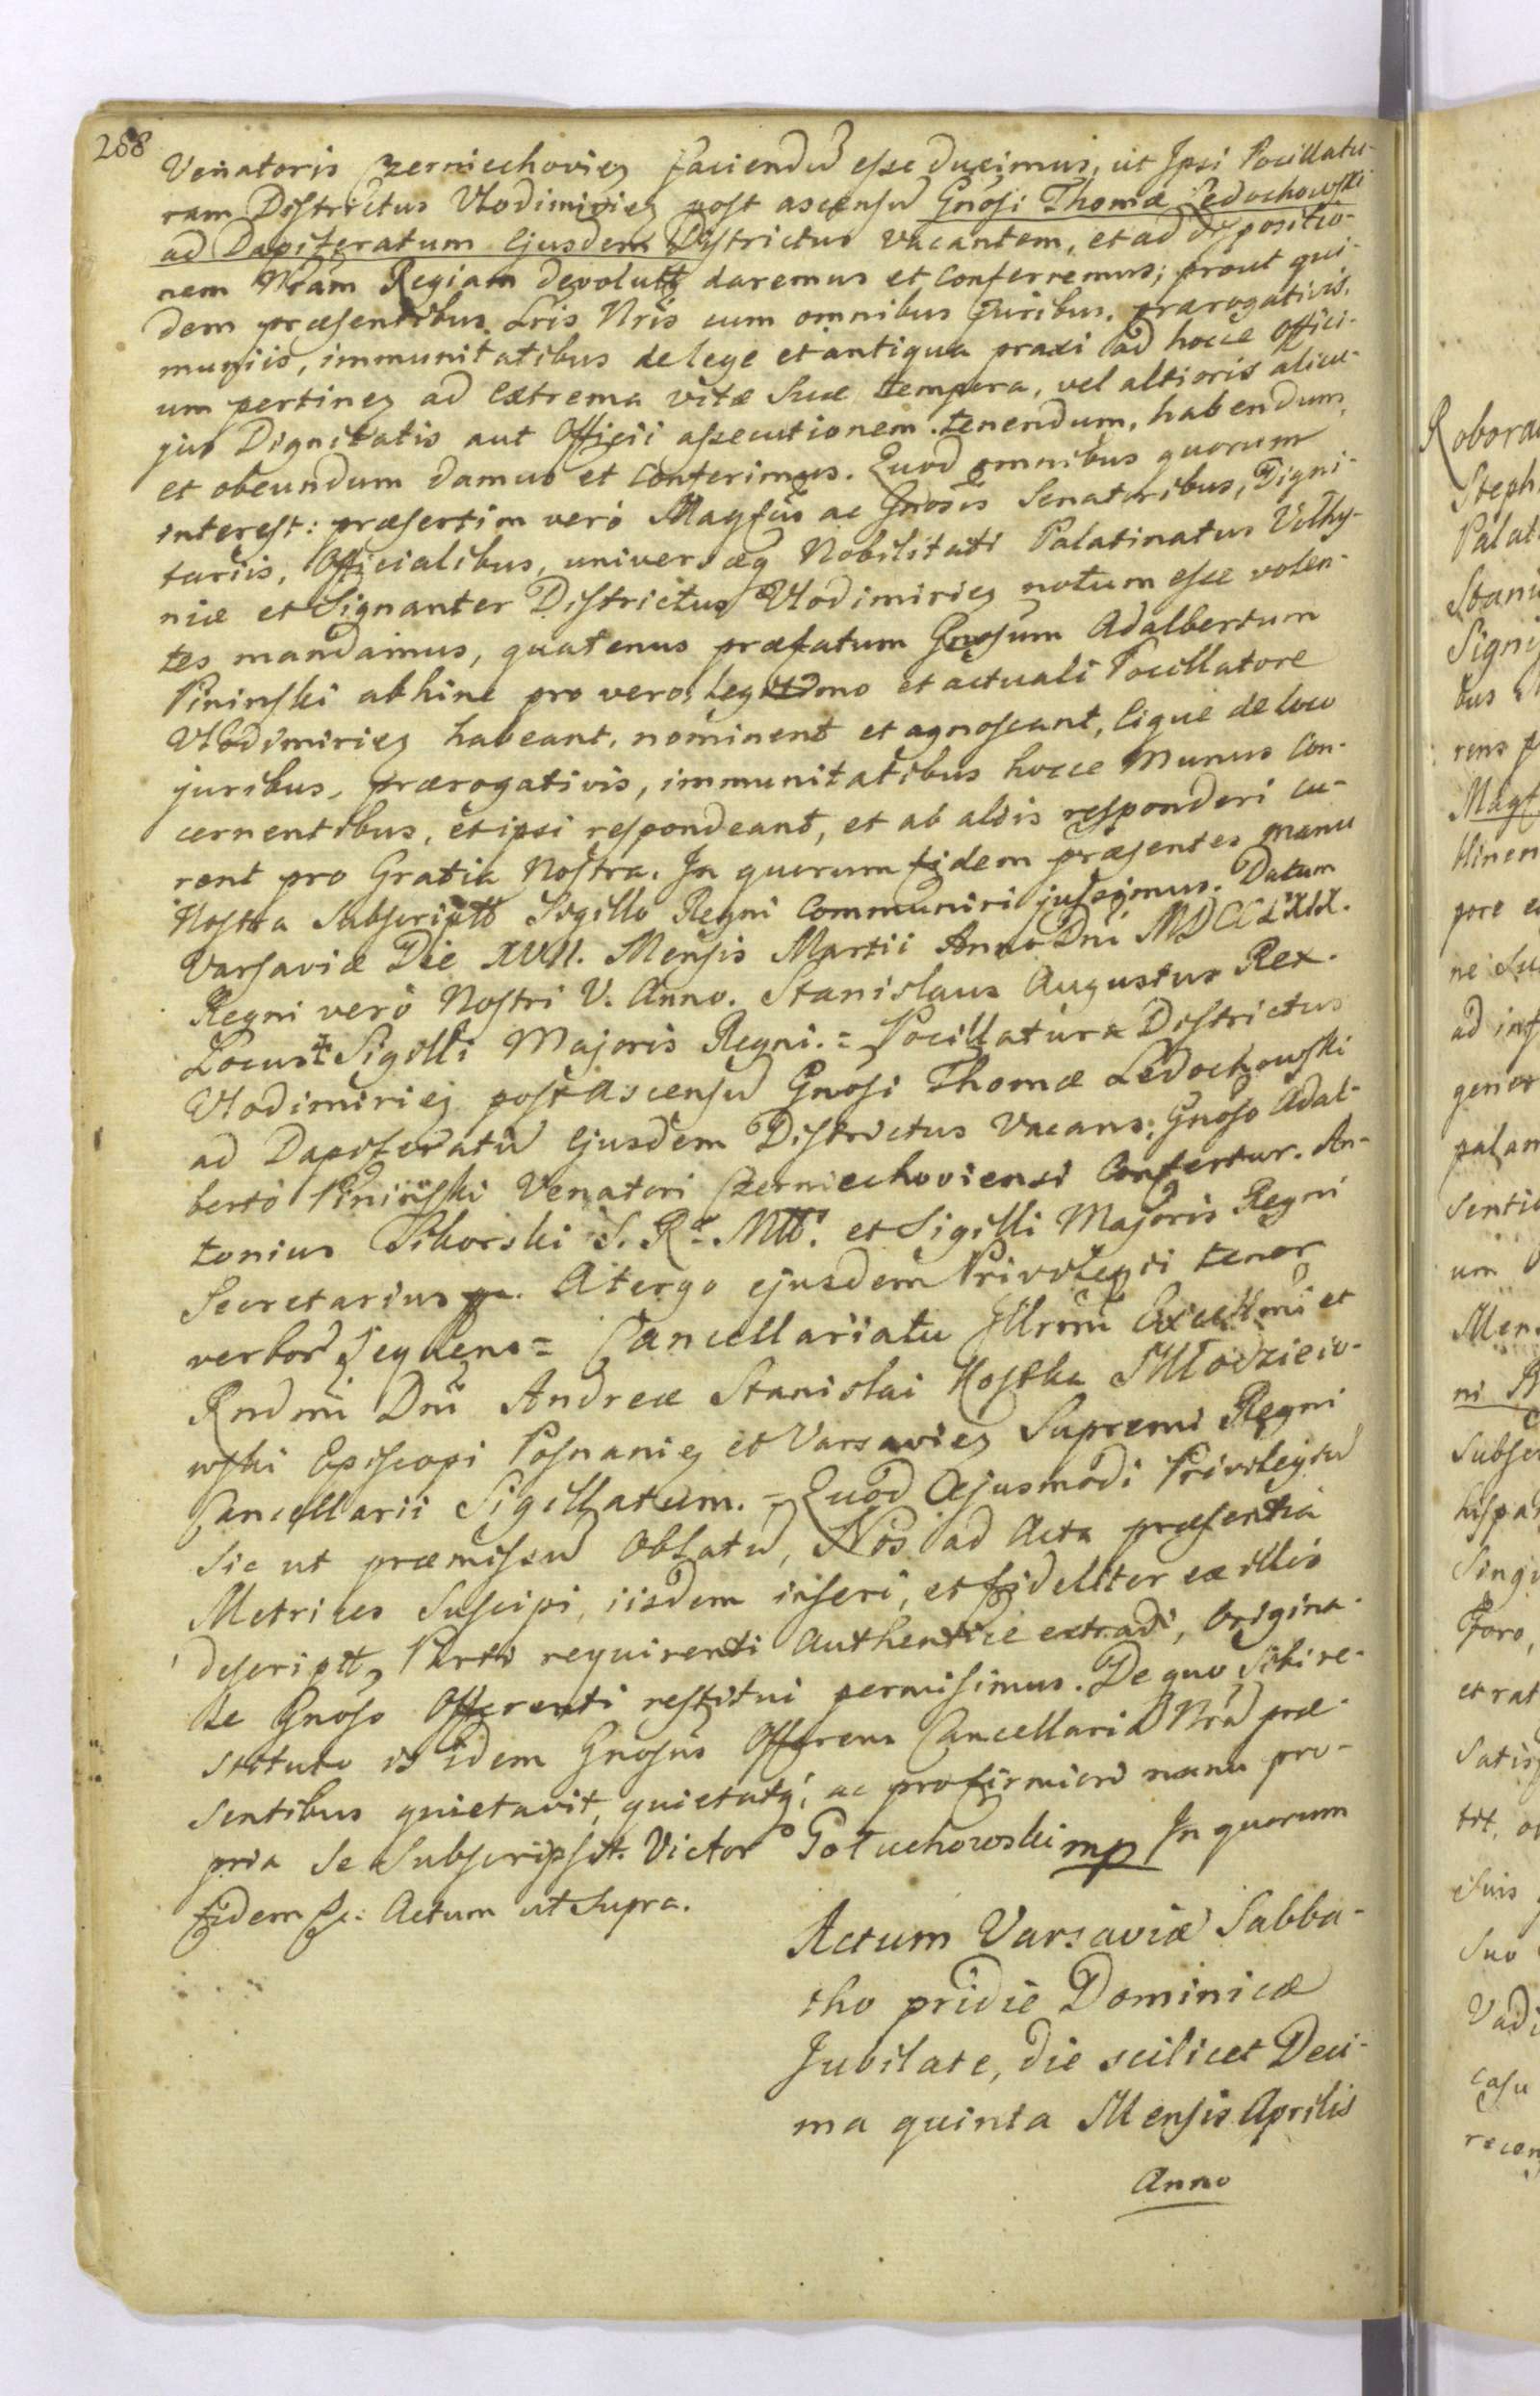 288
Venatoris Czerniechovien faciendū esse duximus, ut Ipsi Pocillatu-
ram Districtus Vlodimirien post ascensū Gnosi Thomæ Ledochowski
ad Dapiferatum Ejusdem Districtus vacantem, et ad dispositio-
nem Nrãm Regiam devolutã daremus et conferremus; prout qui-
dem præsentibus Lris Nris cum omnibus Juribus, prærogativis,
muniis, immunitatibus de lege et antiqua praxi ad hocce Offici-
um pertinen ad extrema vitæ suæ tempora, vel altioris alicu-
jus Dignitatis aut Officii assecutionem tenendum, habendum,
et obeundum damus et conferimus. Quod omnibus quorum
interest: præsertim verò Magfcis ac Gnosis Senatoribus, Digni-
tariis, Officialibus, universæq Nobilitati Palatinatus Volhy-
niæ et Signanter Districtus Vlodimirien notum esse volen-
tes mandamus, quatenus præfatum Gnosum Adalbertum
Pininski abhinc pro vero, legitimo et actuali Pocillatore
Vlodimirien habeant, nominent et agnoscant, Eique de loco
juribus, prærogativis, immunitatibus hocce Munus Con-
cernentibus, et ipsi respondeant, et ab aliis responderi cu-
rent pro Gratia Nostra. In quorum fidem præsentes manu
Nostra Subscriptt Sigillo Regni Communiri jussimus. Datum
Varsaviæ Die XVII. Mensis Martii Anno Dni MDCCLXIX.
Regni verò Nostri V. Anno. Stanislaus Augustus Rex.
Locus Sigilli Majoris Regni. = Pocillatura Districtus
Vlodimirien post Ascensū Gnosi Thomæ Ledochowski
ad Dapiferatū Ejusdem Districtus Vacans; Gnoso Adal-
berto Piniński Venatori Czerniechoviensi Confertur. An-
tonius Sikorski S. R. Mtt. et Sigilli Majoris Regni
Secretarius. Atergo ejusdem Privilegii tenor
verborū Sequens = Cancellariatu Illrmi Excellmi et
Rndmi Dni Andreæ Stanislai Kostka Młodzieio-
wski Episcopi Posnanien et Varsavien Supremi Regni
Cancellarii Sigillatum. = Quod Ejusmodi Privilegiū
sic ut præmissū Oblatū, Nos ad Acta præsentia
Metrices Suscipi, iisdem inseri, et fideliter ex illis
descriptt, Parti requirenti Authentice extradi, Origina-
le Gnoso Offerenti restitui permisimus. De quo Sibi re-
stituto is idem Gnosus Offerens Cancellariā Nrā præ-
sentibus quietavit, quietatq; ac pro firmiori manu pro-
pria Se Subscripsit. Victor Gołuchowski mp In quorum
fidem &c: Actum ut supra.
Actum Varsaviæ Sabba-
tho pridie Dominicæ
Jubilate, die scilicet Deci-
ma quinta Mensis Aprilis
Anno
Robora
Steph
Palat
Stani
Signi
bus
rens
Magf
pore
ad inf
gener
palam
Sentia
um
Mens
Subsc
hispa
Singu
Foro,
et rat
Satis
suis
Suo
Vadi
casu
recen